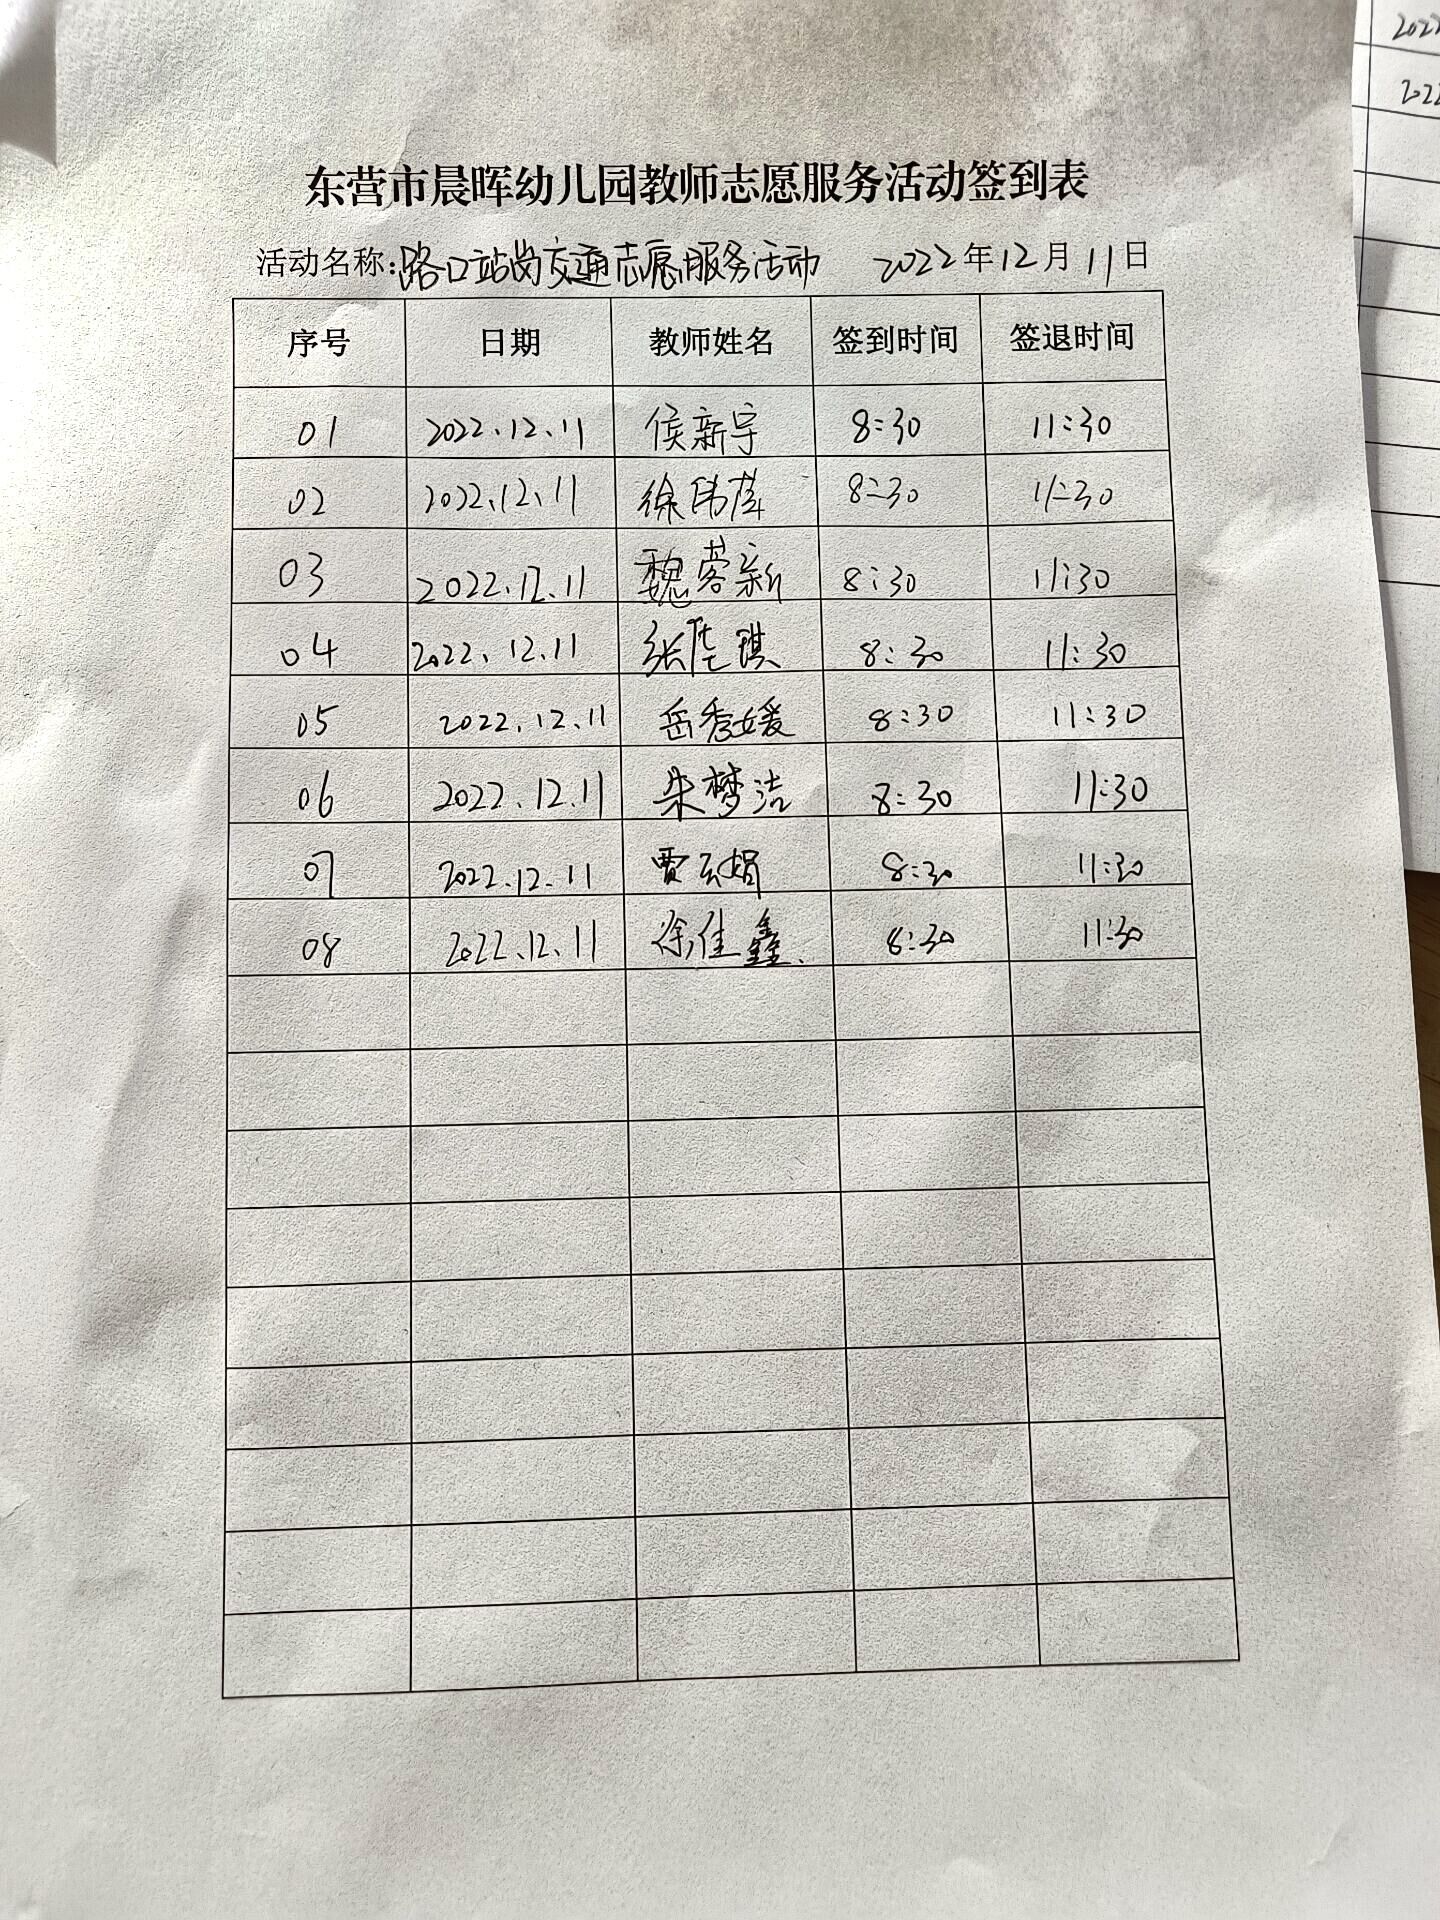 东营市晨晖幼儿园教师志愿服务活动签到表
活动名称:路口站岗交通志愿服务活动 2022年12月11日
序号 日期 教师姓名 签到时间 签退时间
01 2022.12.11 侯新宇 8:30 11:30
02 2022.12.11 徐伟萍 8:30 11:30
03 2022.12.11 魏蓉新 8:30 11:30
04 2022.12.11 张佳琪 8:30 11:30
05 2022.12.11 岳秀媛 8:30 11:30
06 2022.12.11 朱梦洁 8:30 11:30
07 2022.12.11 贾云娟 8:30 11:30
08 2022.12.11 徐佳鑫 8:30 11:30